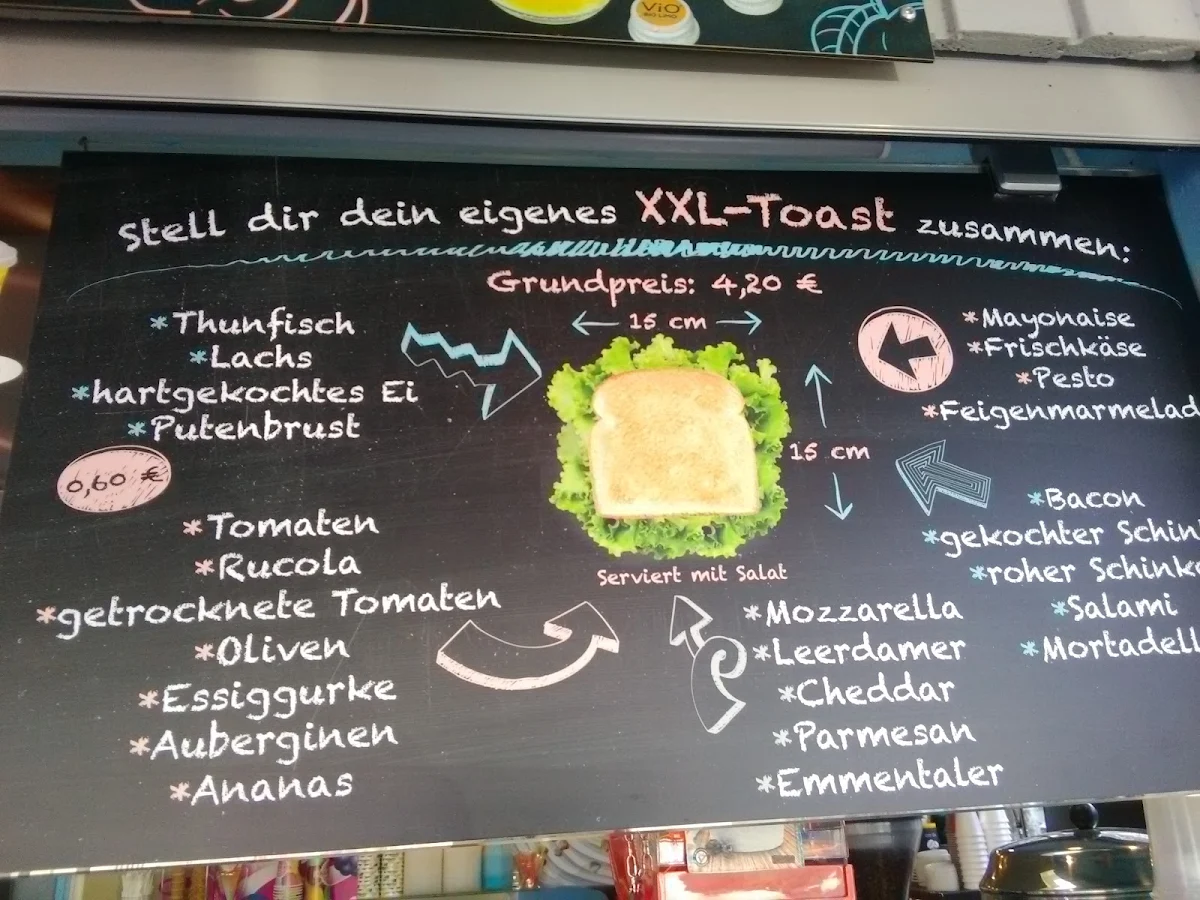 ViO
BIO LIMO
Stell dir dein eigenes XXL-Toast zusammen:
Grundpreis: 4,20 €
15 cm
15 cm
Serviert mit Salat
*Thunfisch
*Lachs
*hartgekochtes Ei
*Putenbrust
0,60 €
*Tomaten
*Rucola
*getrocknete Tomaten
*Oliven
*Essiggurke
*Auberginen
*Ananas
*Mayonaise
*Frischkäse
*Pesto
*Feigenmarmelad
*Bacon
*gekochter Schin
*roher Schinke
*Salami
*Mortadell
*Mozzarella
*Leerdamer
*Cheddar
*Parmesan
*Emmentaler